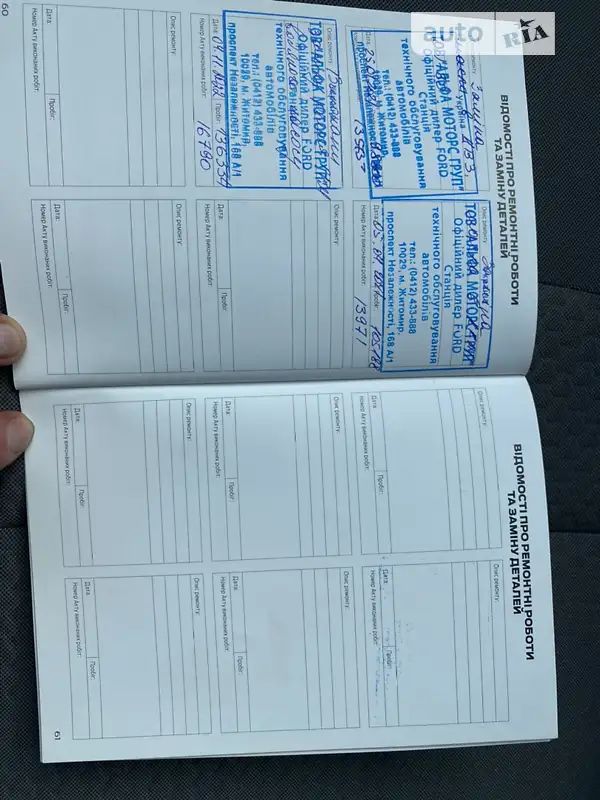 auto RIA
60
ВІДОМОСТІ ПРО РЕМОНТНІ РОБОТИ
ТА ЗАМІНУ ДЕТАЛЕЙ
Опис ремонту: Заміна
ТОВ "АЛЬФА МОТОРС ГРУП"
Офіційний дилер FORD
Станція
технічного обслуговування
автомобілів
тел.: (0412) 433-888
10029, м. Житомир,
проспект Незалежності, 168 А/1
Дата:
Опис ремонту:
ТОВ "АЛЬФА МОТОРС ГРУП"
Офіційний дилер FORD
Станція
технічного обслуговування
автомобілів
тел.: (0412) 433-888
10029, м. Житомир,
проспект Незалежності, 168 А/1
Дата: Пробіг:
13971
Опис ремонту:
ТОВ "АЛЬФА МОТОРС ГРУП"
Офіційний дилер FORD
Станція
технічного обслуговування
автомобілів
тел.: (0412) 433-888
10029, м. Житомир,
проспект Незалежності, 168 А/1
Дата: 04.11.2022 Пробіг: 136334
Номер Акту виконаних робіт: 16790
Опис ремонту:
Дата: Пробіг:
Номер Акту виконаних робіт:
Дата: Пробіг:
Номер Акту виконаних робіт:
Опис ремонту:
Дата: Пробіг:
Номер Акту виконаних робіт:
ВІДОМОСТІ ПРО РЕМОНТНІ РОБОТИ
ТА ЗАМІНУ ДЕТАЛЕЙ
Опис ремонту:
Дата: Пробіг:
Номер Акту виконаних робіт:
Опис ремонту:
Дата: Пробіг:
Номер Акту виконаних робіт:
Опис ремонту:
Дата: Пробіг:
Номер Акту виконаних робіт:
Опис ремонту:
Дата: Пробіг:
Номер Акту виконаних робіт:
Опис ремонту:
Дата: Пробіг:
Номер Акту виконаних робіт:
Опис ремонту:
Дата: Пробіг:
Номер Акту виконаних робіт:
61